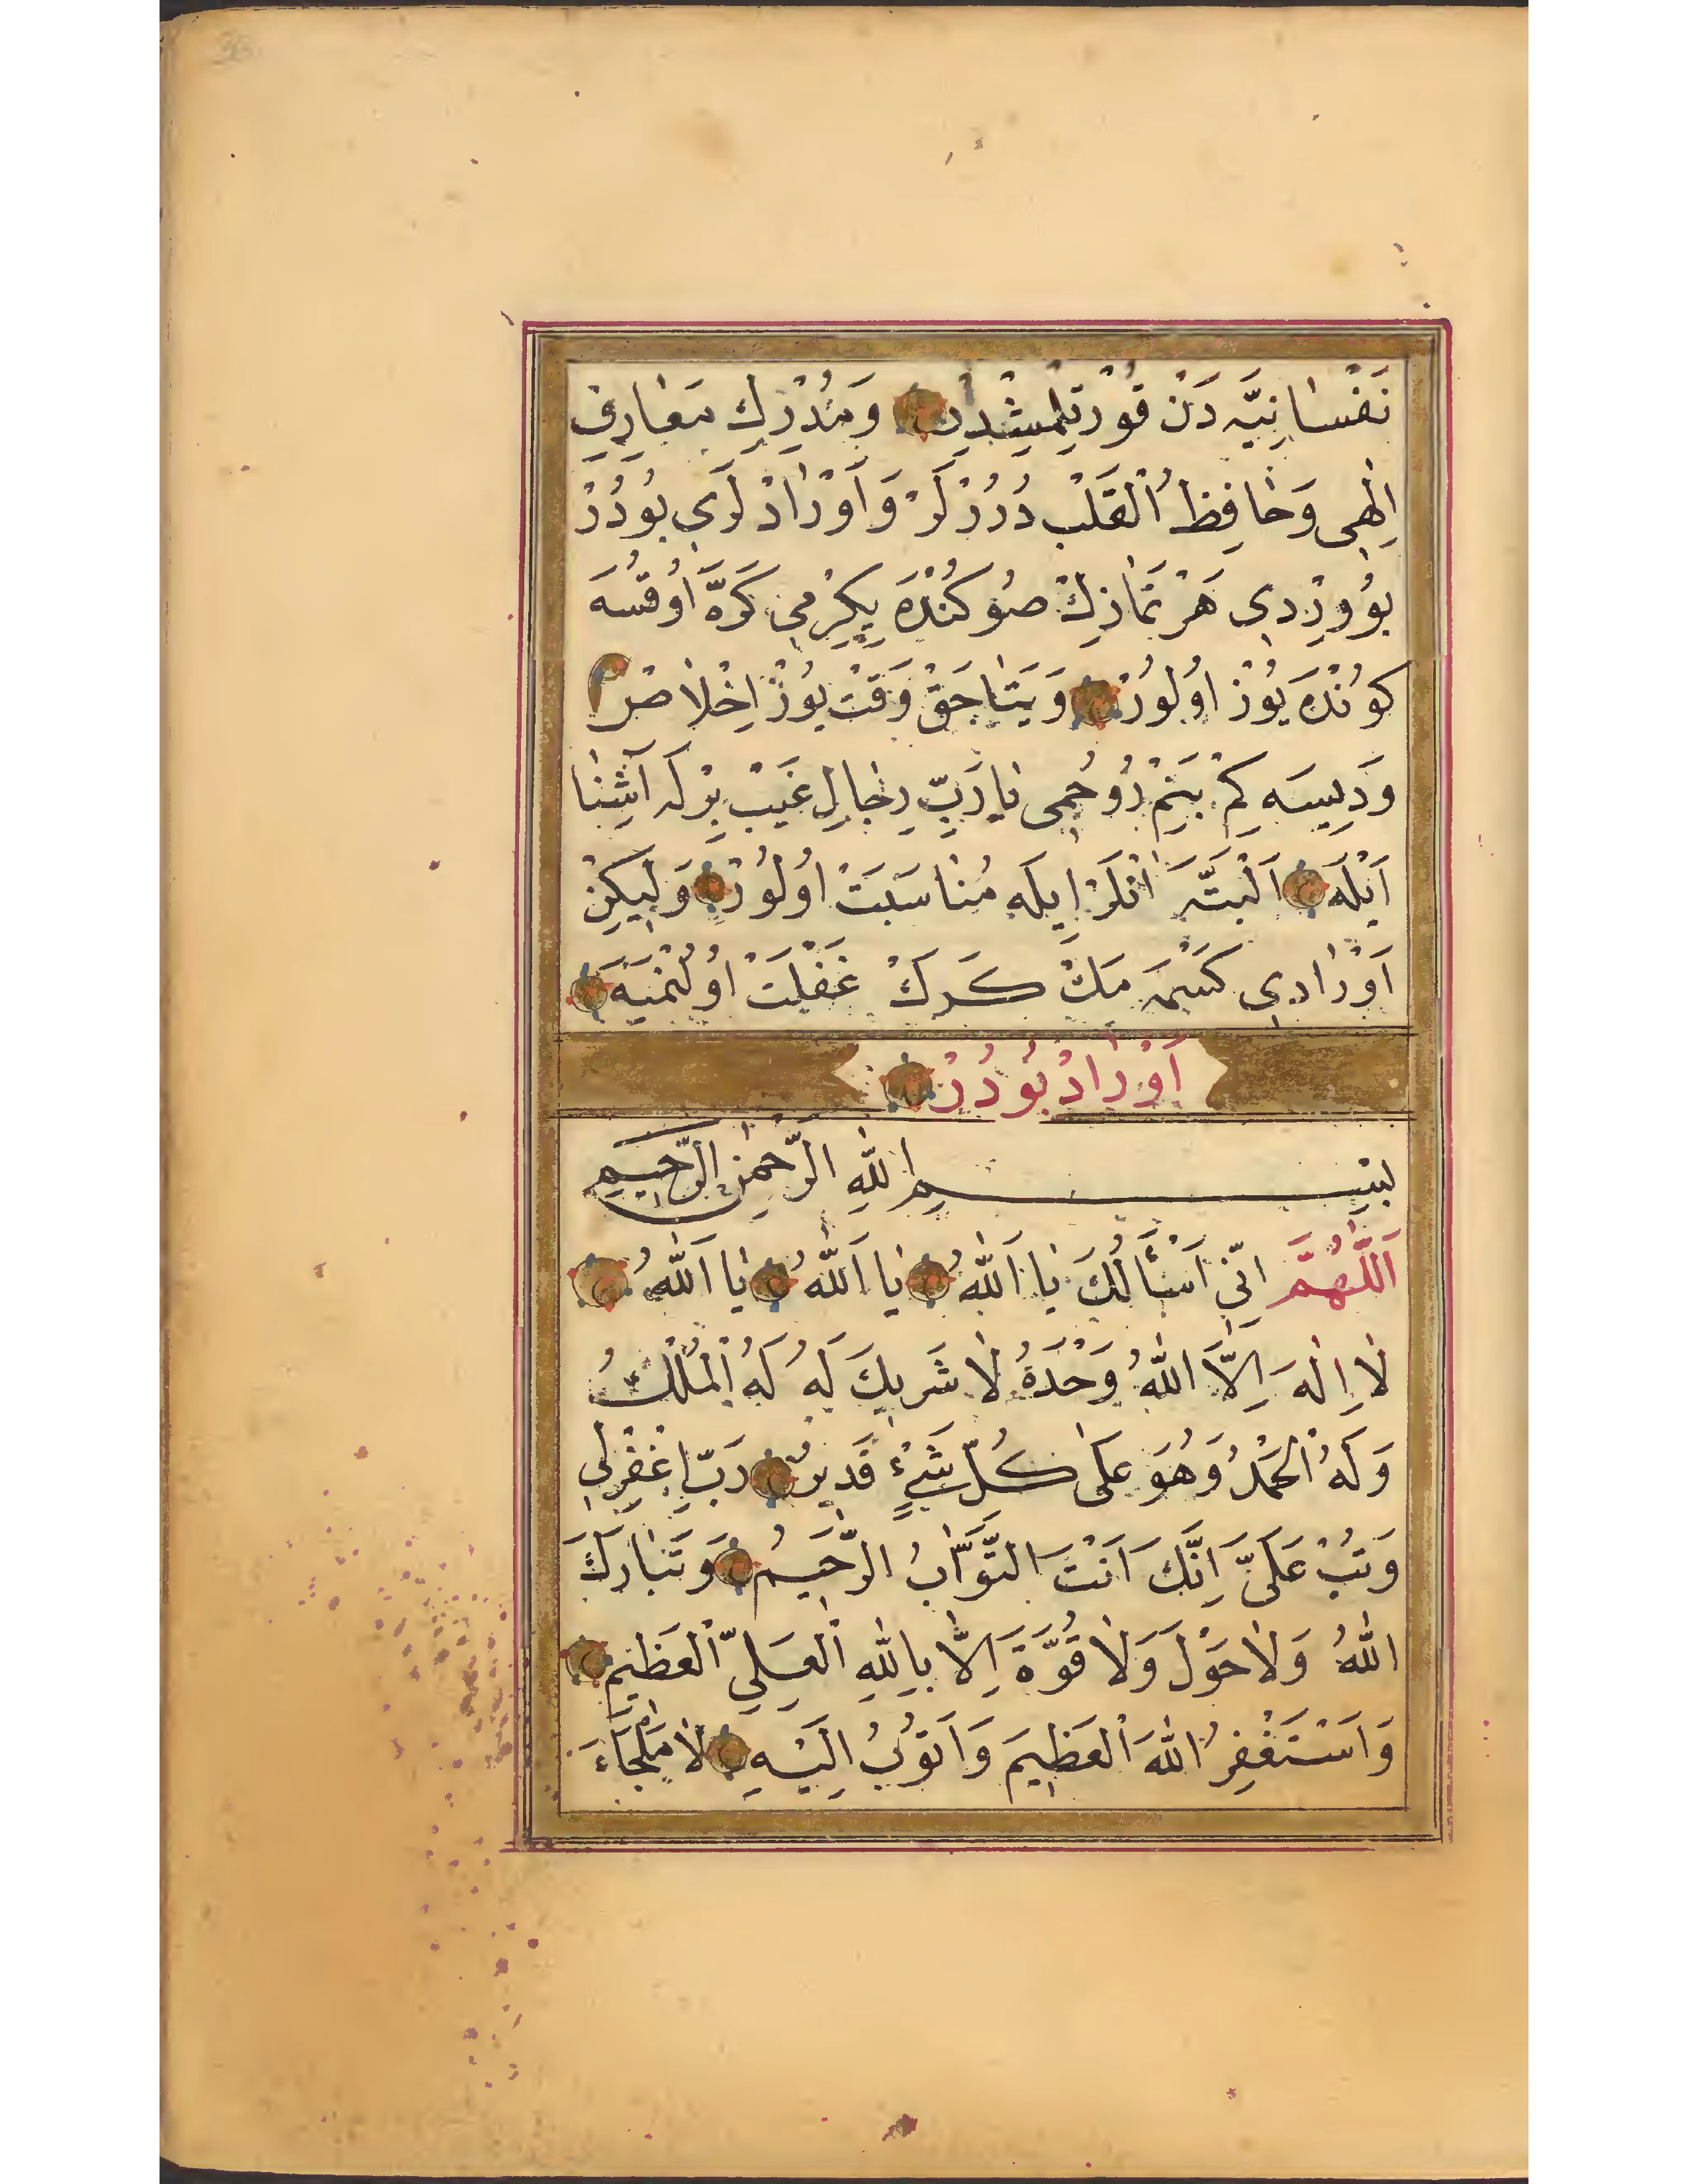 نَفْسَانِيَّه دَنْ قُورْتِلْمِشْدِر وَمُدْرِكِ مَعَارِفِ
اِلٰهِى وَحَافِظُ الْقَلْبِ دُرُرْلَرْ وَاَوْرَادْلَرِى بُودُرْ
بُو وِرْدِى هَرْ نَمَازِكْ صُوكُنْدَه يِكِرْمِى كَرَّه اُوقُسَه
كُونْدَه يُوزْ اُولُورْ وَيَتَاجَقْ وَقَتْ يُوزْ اِخْلَاصْ
وَدِيسَه كِمْ بَنِمْ رُوحُمِى يَارَبِّ رِجَالِ غَيْب بِرْلَه آشِنَا
اَيْلَه اَلْبَتَّه اَنْلَرْ اِيلَه مُنَاسَبَتْ اُولُورْ وَلِيكِنْ
اَوْرَادِى كَسْمَه مَكْ كَرَكْ غَفْلَتْ اُولُنْمَيَه
اَوْرَادْ بُودُرْ
بِسْمِ اللّٰهِ الرَّحْمٰنِ الرَّحِيمِ
اَللّٰهُمَّ اِنِّى اَسْأَلُكَ يَا اَللّٰهُ يَا اَللّٰهُ يَا اَللّٰهُ
لَا اِلٰهَ اِلَّا اللّٰهُ وَحْدَهُ لَا شَرِيكَ لَهُ لَهُ الْمُلْكُ
وَلَهُ الْحَمْدُ وَهُوَ عَلٰى كُلِّ شَيْءٍ قَدِيرٌ رَبِّ اغْفِرْلِى
وَتُبْ عَلَىَّ اِنَّكَ اَنْتَ التَّوَّابُ الرَّحِيمُ وَتَبَارَكَ
اللّٰهُ وَلَا حَوْلَ وَلَا قُوَّةَ اِلَّا بِاللّٰهِ الْعَلِىِّ الْعَظِيمِ
وَاَسْتَغْفِرُ اللّٰهَ الْعَظِيمَ وَاَتُوبُ اِلَيْهِ لَا مَلْجَاءَ